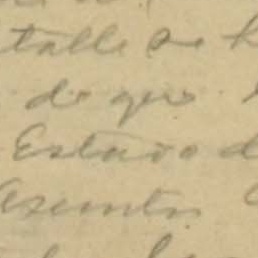 talle se
de que
Estado d
Asunto